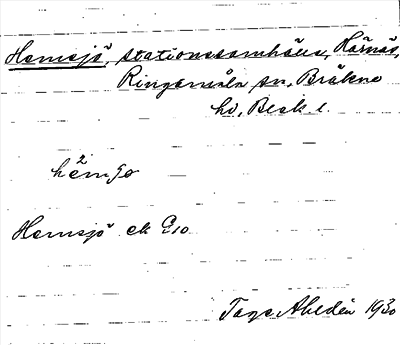 Hemsjö, stationssamhälle, Härnäs,
Ringamåla sn, Bräkne
hd, Blek. l.
2
hem
Hemsjö ek E10
Tage Ahldén 1930